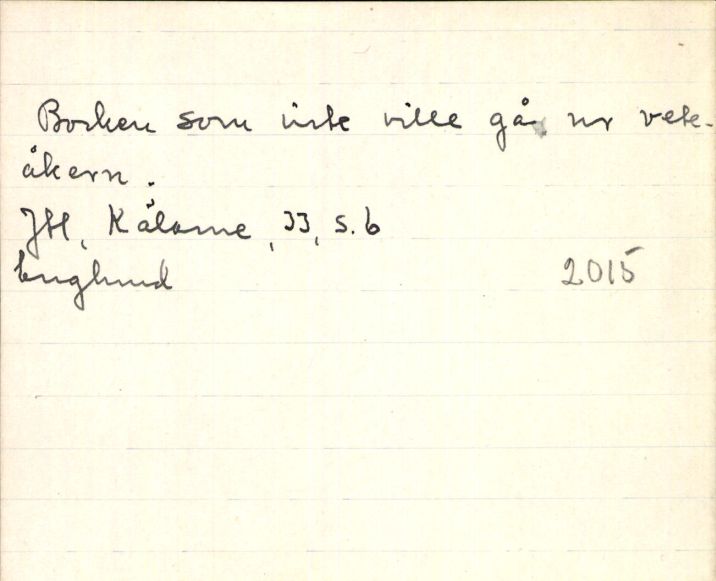 Bocken som inte ville gå ur vete-
åkern.
Jtl, Kälarne, 33, s. 6
Englund 2015